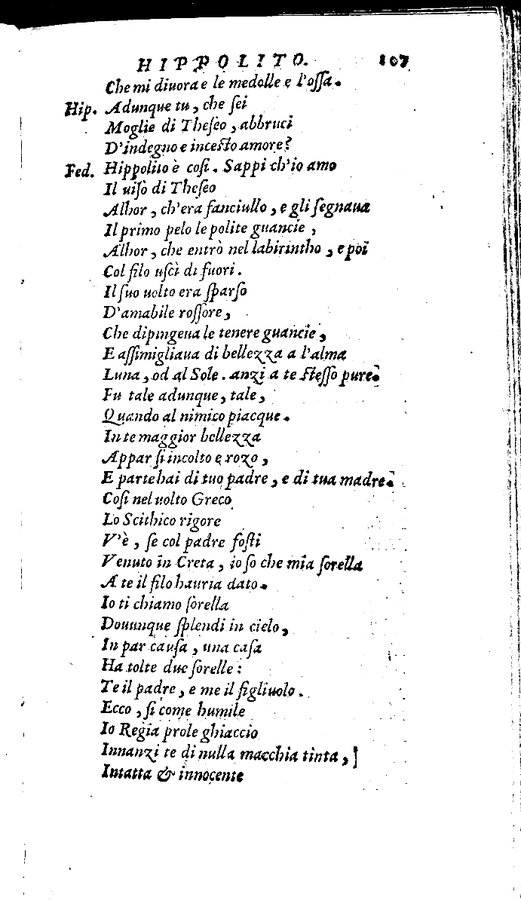 HIPPOLITO. 107
Che mi diuora e le medolle e l'oſſa.
Hip. Adunque tu, che ſei
Moglie di Theſeo, abbruci
D'indegno e inceſto amore?
Fed. Hippolito è coſi. Sappi ch'io amo
Il uiſo di Theſeo
Alhor, ch'era fanciullo, e gli ſegnaua
Il primo pelo le polite guancie,
Alhor, che entrò nel labirintho, e poi
Col filo uſcì di fuori.
Il ſuo uolto era ſparſo
D'amabile roſſore,
Che dipingeua le tenere guancie,
E aſſimigliaua di bellezza a l'alma
Luna, od al Sole. anzi a te ſteſſo pure.
Fu tale adunque, tale,
Quando al nimico piacque.
In te maggior bellezza
Appar ſi incolto e rozo,
E parte hai di tuo padre, e di tua madre.
Coſi nel uolto Greco
Lo Scithico rigore
V'è, ſe col padre foſti
Venuto in Creta, io ſo che mia ſorella
A te il filo hauria dato.
Io ti chiamo ſorella
Douunque ſplendi in cielo,
In par cauſa, una caſa
Ha tolte due ſorelle:
Te il padre, e me il figliuolo.
Ecco, ſi come humile
Io Regia prole ghiaccio
Innanzi te di nulla macchia tinta,
Intatta & innocente